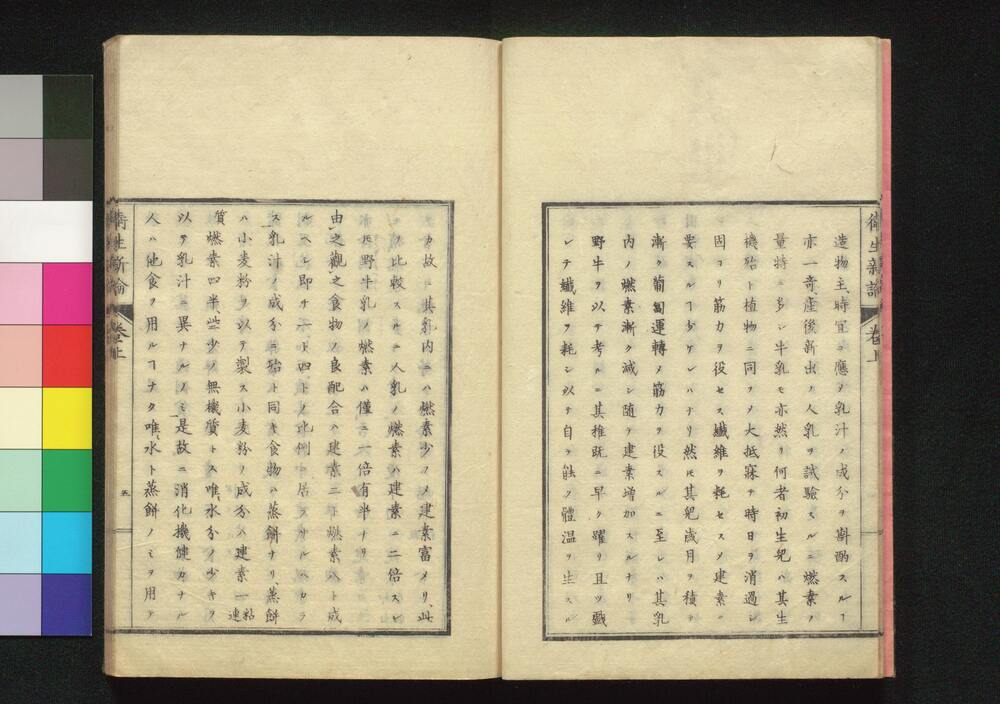 衛生新論
卷上
造物主、時宜ニ應メ乳汁ノ成分ヲ斟酌スルヿ
亦一奇、産後新出ノ人乳ヲ試驗スルニ燃素ノ
量特ニ多シ牛乳モ亦然リ何者初生兒ハ其生
機殆ト植物ニ同ヲメ大抵寐テ時日ヲ消過シ
固ヨリ筋力ヲ役セス纎維ヲ耗セスメ建素ヲ
要スルヿ少ケレハナリ然ㇳモ其兒歳月ヲ積テ
漸ク匍匐運轉メ筋力ヲ役スルニ至レハ其乳
内ノ燃素漸ク減シ随テ建素増加スルナリ
野牛ヲ以テ考ルニ其稚既ニ早ク躍リ且ツ戯
レテ纎維ヲ耗シ以テ自ラ能ク體温ヲ生スル
カ故ニ其乳内ニハ燃素少フメ建素富メリ、此
ヲ比較スルニ人乳ノ燃素ハ建素ニ二倍スレ
ㇳモ野牛乳ノ燃素ハ僅ニ一倍有半ナリ
由之觀之食物ノ良配合ハ建素二ト燃素八ト成
ルヘシ即チ一ト四トノ比例ニ居ラサルヘカラ
ス乳汁ノ成分ニ殆ト同キ食物ハ蒸餅ナリ、蒸餅
ハ小麦粉ヲ以テ製ス小麦粉ノ成分ハ建素一粘連
質燃素四半、些少ノ無機質トス唯、水分ノ少キヲ
以テ乳汁ニ異ナルノミ是故ニ消化機健カナル
人ハ他食ヲ用ルヿナク唯、水ト蒸餅ノミヲ用テ
衛生新論
卷上
五